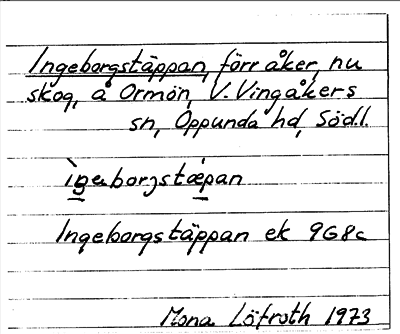 Ingeborgstäppan, förr åker, nu
skog, å Ormön, V. Vingåkers
sn, Oppunda hd, Södl.
ìŋeborjstæ̀pan
Ingeborgstäppan ek 9G8c
Mona Löfroth 1973